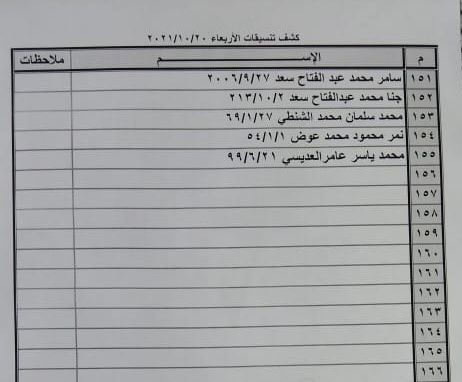 كشف تنسيقات الأربعاء ٢٠٢١/١٠/٢٠
م الإســــم ملاحظات
١٥١ سامر محمد عبد الفتاح سعد ٢٠٠٦/٩/٢٧
١٥٢ جنا محمد عبدالفتاح سعد ٢١٣/١٠/٢
١٥٣ محمد سلمان محمد الشنطي ٦٩/١/٢٧
١٥٤ نمر محمود محمد عوض ٥٤/١/١
١٥٥ محمد ياسر عامر العديسي ٩٩/٦/٢١
١٥٦
١٥٧
١٥٨
١٥٩
١٦٠
١٦١
١٦٢
١٦٣
١٦٤
١٦٥
١٦٦